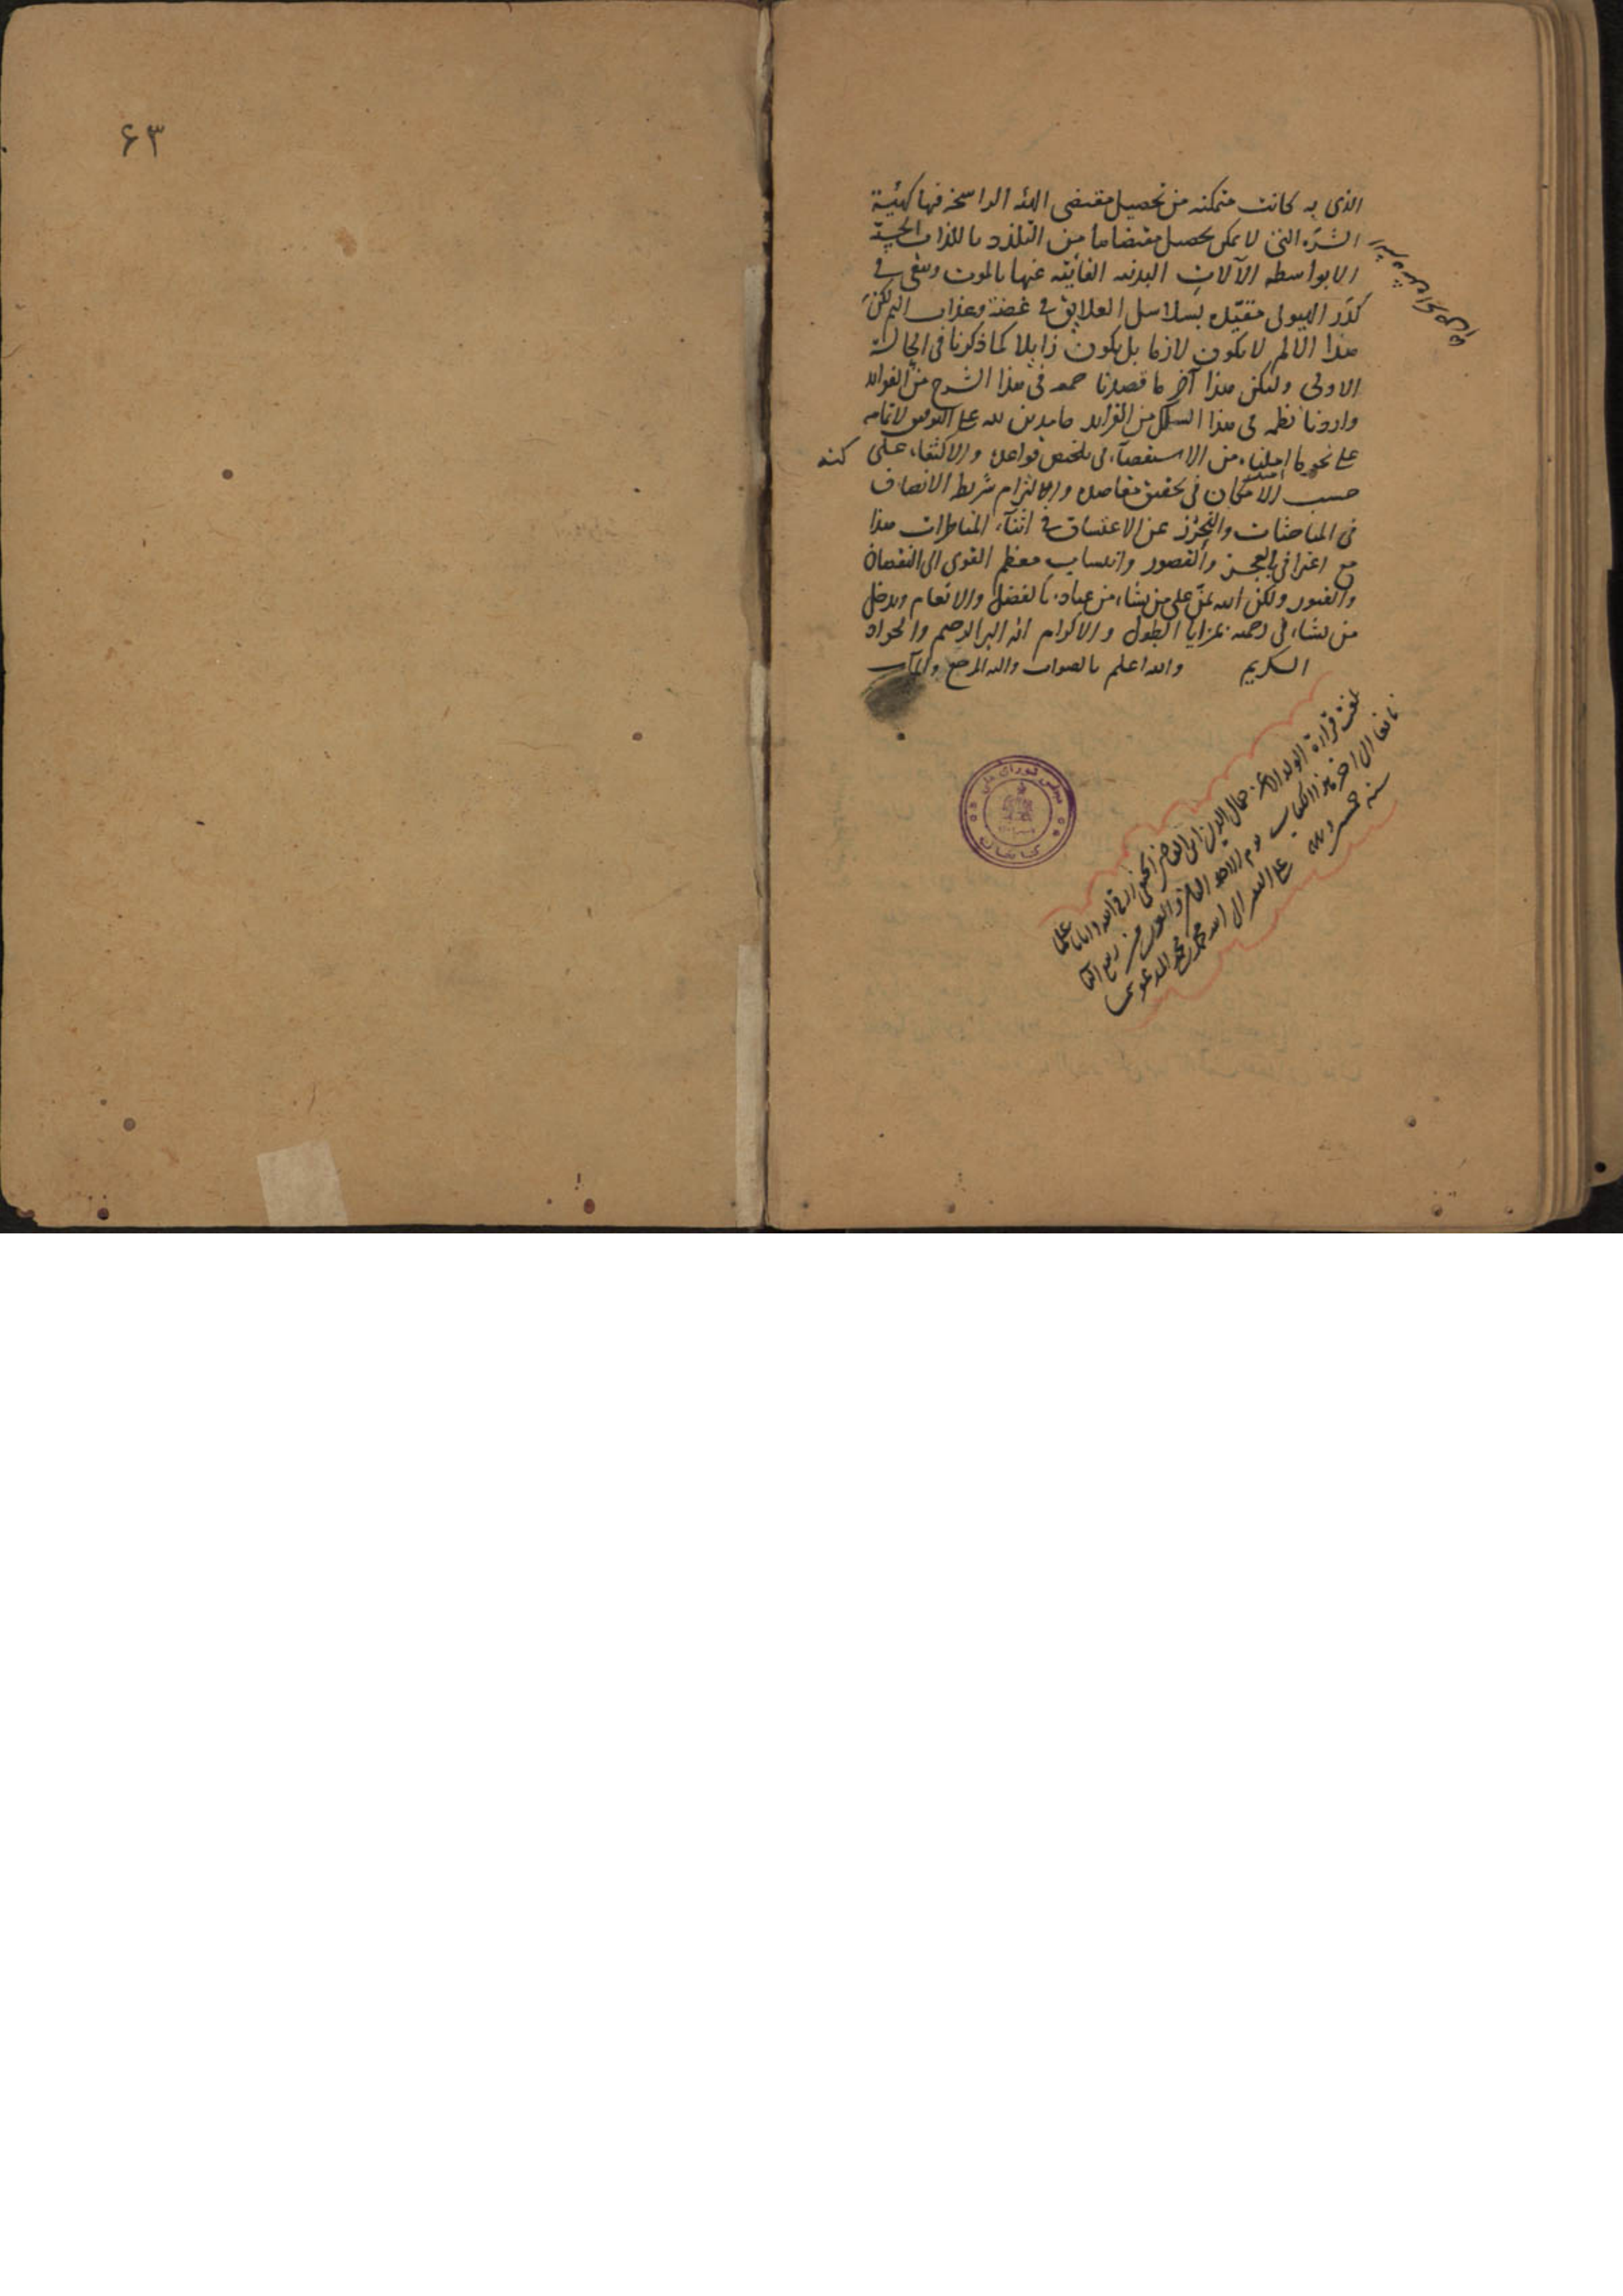 الذى به كانت متمكنه من تحصيل مقتضى الهيئة الراسخه فيها كهيئة
الشره التى لا يمكن تحصيل مقتضاها من التلذذ باللذات الحسية
الا بواسطه الآلات البدنيه الغايبه عنها بالموت وتبقى فى
كدر الهيولى مقيده بسلاسل العلايق فى غصة وعذاب اليم لكن
هذا الالم لا يكون لازما بل يكون زايلا كما ذكرنا فى الحالة
الاولى وليكن هذا آخر ما قصدنا جمعه فى هذا الشرح من الفوائد
واردنا نظمه فى هذا السلك من الفرايد حامدين لله على التوفيق لاتمامه
على نحو ما املناه من الاستقصآء فى تلخيص قواعده والاكتفاء على كنه
حسب الامكان فى تحقيق مقاصده والالتزام شريطه الانصاف
فى المباحثات والتحرز عن الاعتساف فى اثنآء المناظرات هذا
مع اعترافى بالعجز والقصور وانتساب معظم القوى الى النقصان
والفتور ولكن الله يمن على من يشاء من عباده بالفضل والانعام ويدخل
من يشاء فى رحمته بمزايا الطول والاكرام انه البر الرحيم والجواد
الكريم والله اعلم بالصواب واليه المرجع والمآب
بلغت قراءة الولد الاعز جمال الدين
الى اخر هذا الكتاب يوم الاحد
سنه خمس
مجلس شوراى ملى
كتابخانه
۶۳